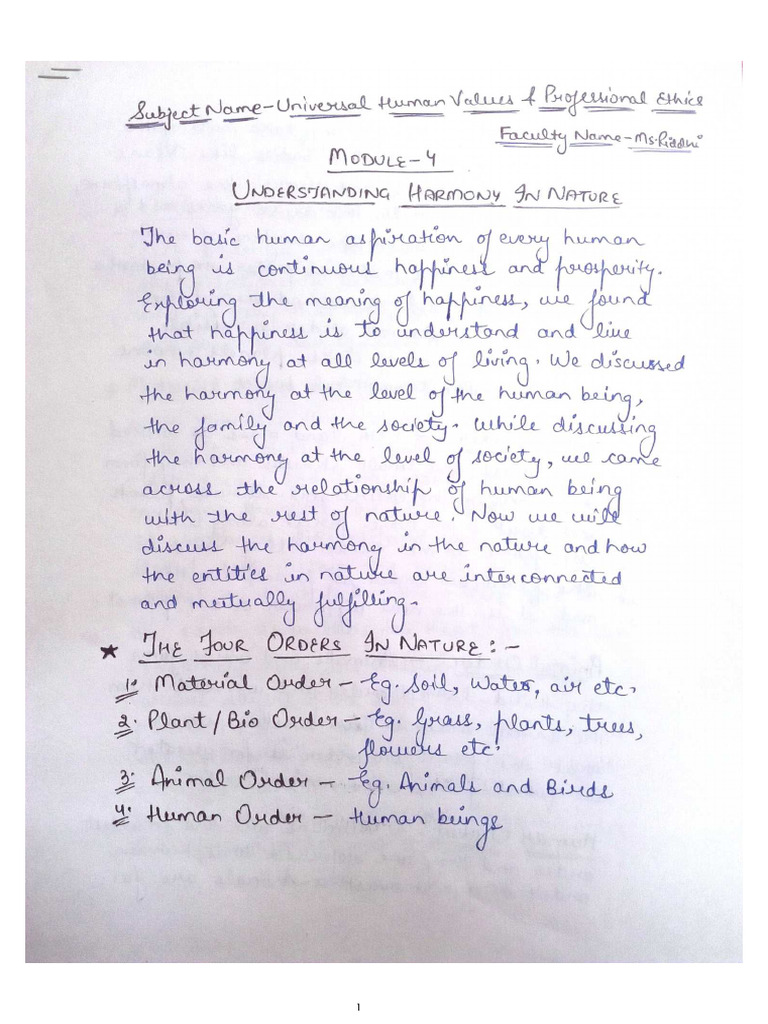 Subject Name - Universal Human Values & Professional Ethics
Faculty Name - Ms. Riddhi
MODULE - 4
UNDERSTANDING HARMONY IN NATURE
The basic human aspiration of every human
being is continuous happiness and prosperity.
Exploring the meaning of happiness, we found
that happiness is to understand and live
in harmony at all levels of living. We discussed
the harmony at the level of the human being,
the family and the society. While discussing
the harmony at the level of society, we came
across the relationship of human being
with the rest of nature. Now we will
discuss the harmony in the nature and how
the entities in nature are interconnected
and mutually fulfilling.
★ THE FOUR ORDERS IN NATURE : -
1. Material Order - Eg. Soil, Water, air etc.
2. Plant / Bio Order - Eg. Grass, plants, trees,
flowers etc.
3. Animal Order - Eg. Animals and Birds
4. Human Order - Human beings
1